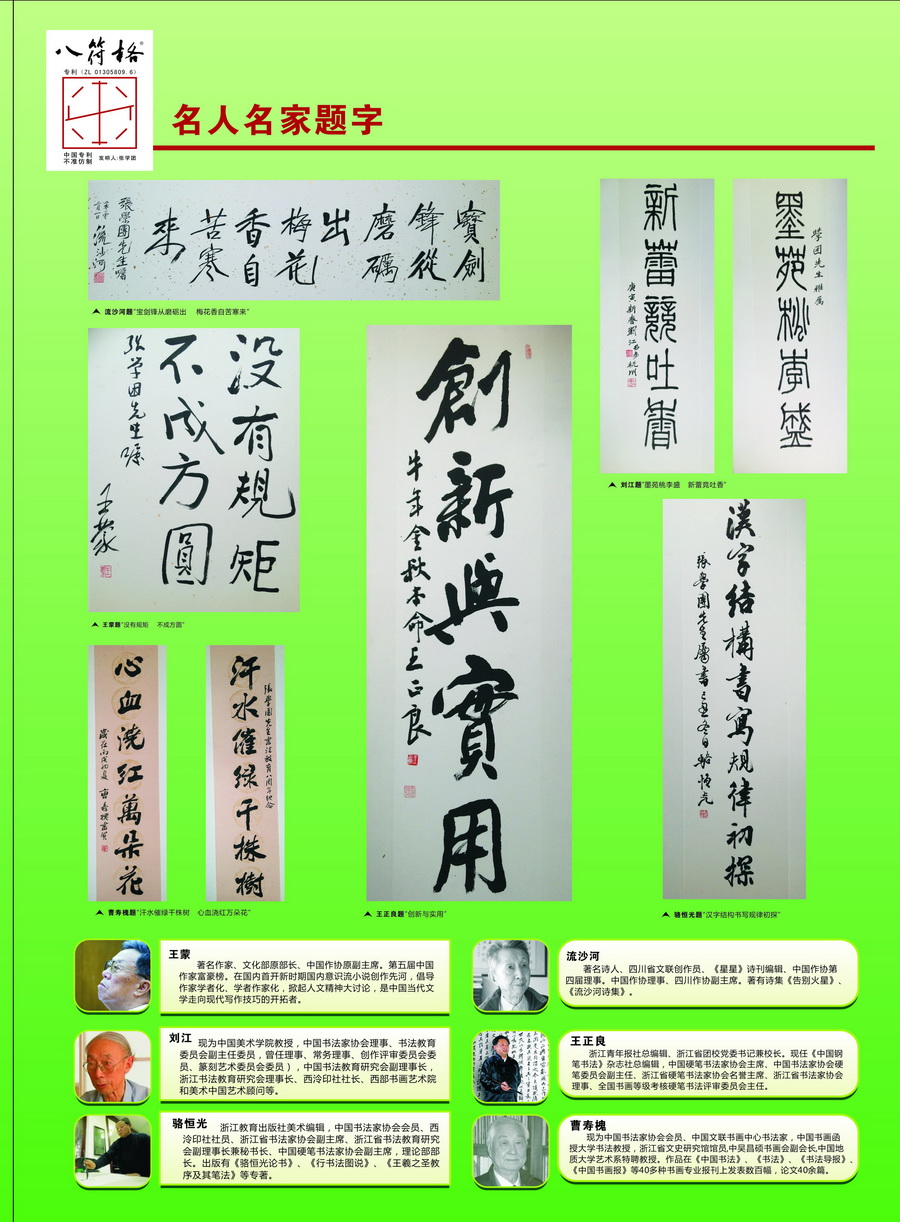 八符格®
专利（ZL 01305809.6）
中国专利
不准仿制
发明人:张学团
名人名家题字
寶劍
鋒從
磨礪
出
梅花
香自
苦寒
來
張學團先生囑
流沙河
流沙河题“宝剑锋从磨砺出 梅花香自苦寒来”
墨苑桃李盛
學团先生雅属
新蕾競吐香
庚寅新春劉江於杭州
刘江题“墨苑桃李盛 新蕾竞吐香”
没有規矩
不成方圓
張学团先生嘱
王蒙
王蒙题“没有规矩 不成方圆”
創新與實用
牛年金秋本命王正良
王正良题“创新与实用”
漢字结構書寫規律初探
張學團先生屬書
骆恒光
骆恒光题“汉字结构书写规律初探”
汗水催绿千株樹
心血浇红萬朵花
曹寿槐题“汗水催绿千株树 心血浇红万朵花”
王蒙
著名作家、文化部原部长、中国作协原副主席。第五届中国
作家富豪榜。在国内首开新时期国内意识流小说创作先河，倡导
作家学者化、学者作家化，掀起人文精神大讨论，是中国当代文
学走向现代写作技巧的开拓者。
流沙河
著名诗人、四川省文联创作员、《星星》诗刊编辑、中国作协第
四届理事。中国作协理事、四川作协副主席。著有诗集《告别火星》、
《流沙河诗集》。
刘江 现为中国美术学院教授，中国书法家协会理事、书法教育
委员会副主任委员，曾任理事、常务理事、创作评审委员会委
员、篆刻艺术委员会委员），中国书法教育研究会副理事长，
浙江书法教育研究会理事长、西泠印社社长、西部书画艺术院
和美术中国艺术顾问等。
王正良
浙江青年报社总编辑、浙江省团校党委书记兼校长。现任《中国钢
笔书法》杂志社总编辑，中国硬笔书法家协会主席、中国书法家协会硬
笔委员会副主任、浙江省硬笔书法家协会名誉主席、浙江省书法家协会
理事、全国书画等级考核硬笔书法评审委员会主任。
骆恒光 浙江教育出版社美术编辑，中国书法家协会会员、西
泠印社社员、浙江省书法家协会副主席、浙江省书法教育研究
会副理事长兼秘书长、中国硬笔书法家协会副主席，理论部部
长。出版有《骆恒光论书》、《行书法图说》、《王羲之圣教
序及其笔法》等专著。
曹寿槐
现为中国书法家协会会员、中国文联书画中心书法家，中国书画函
授大学书法教授，浙江省文史研究馆馆员,中吴昌硕书画会副会长,中国地
质大学艺术系特聘教授。作品在《中国书法》、《书法》、《书法导报》、
《中国书画报》等40多种书画专业报刊上发表数百幅，论文40余篇。